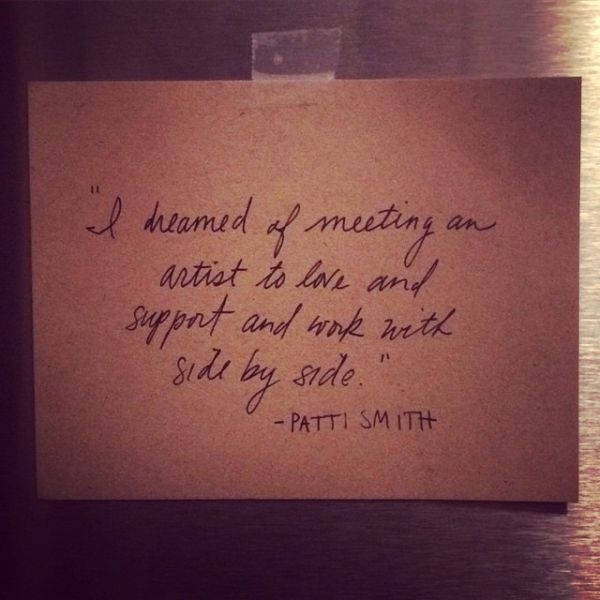 "I dreamed of meeting an
artist to love and
support and work with
side by side."
-PATTI SMITH